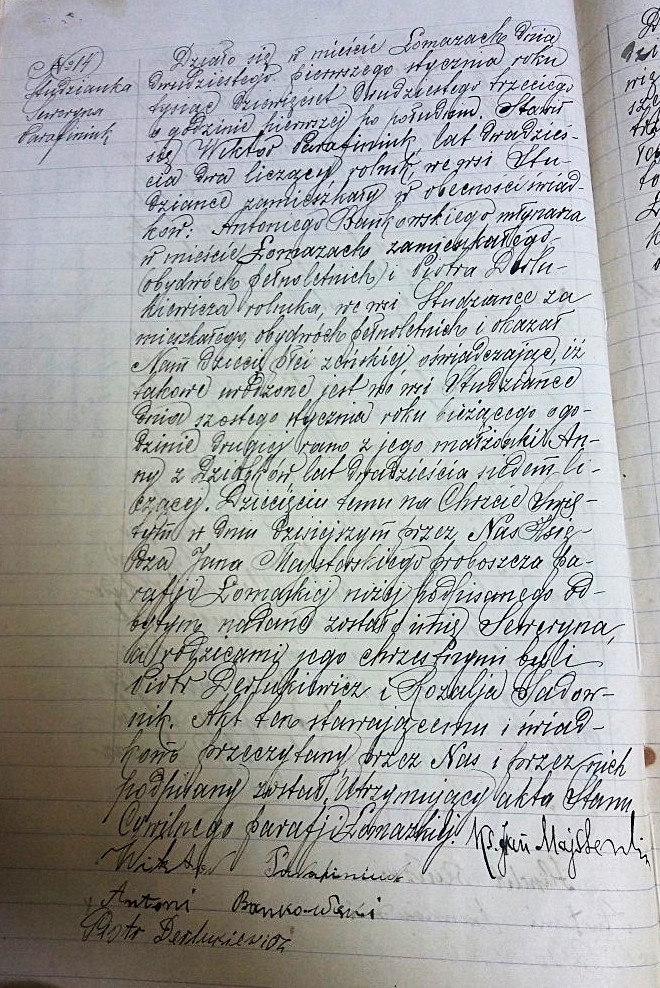 № 14
Studzianka
Seweryna
Parafiniuk
Działo się w mieście Łomazach dnia
dwudziestego pierwszego stycznia roku
tysiąc dziewięćset dwudziestego trzeciego
o godzinie pierwszej po południu. Stawił
się Wiktor Parafiniuk, lat dwadzieś-
cia dwa liczący, rolnik, we wsi Stu-
dziance zamieszkały w obecności świad-
ków: Antoniego Bańkowskiego młynarza
w mieście Łomazach zamieszkałego
(obydwóch pełnoletnich) i Piotra Derlu-
kiewicza rolnika, we wsi Studziance za
mieszkałego, obydwóch pełnoletnich i okazał
Nam dziecię płci żeńskiej oświadczając, iż
takowe urodzone jest we wsi Studziance
dnia szóstego stycznia roku bieżącego o go-
dzinie drugiej rano z jego małżonki An-
ny z lat dwadzieścia siedem li-
czącej. Dziecięciu temu na Chrzcie Świę-
tym w dniu dzisiejszym przez Nas Księ-
dza Jana proboszcza pa-
rafji Łomaskiej niżej podpisanego od-
bytym nadane zostało imię Seweryna,
a rodzicami jego chrzestnymi byli
Piotr Derlukiewicz i Rozalja Sadow-
nik. Akt ten stawającemu i świad-
kom przeczytany przez Nas i przez nich
podpisany został. Utrzymujący akta Stanu
Cywilnego parafji Łomazkiej. Ks. Jan
Wiktor Parafiniuk
Antoni Bańkowski
Piotr Derlukiewicz